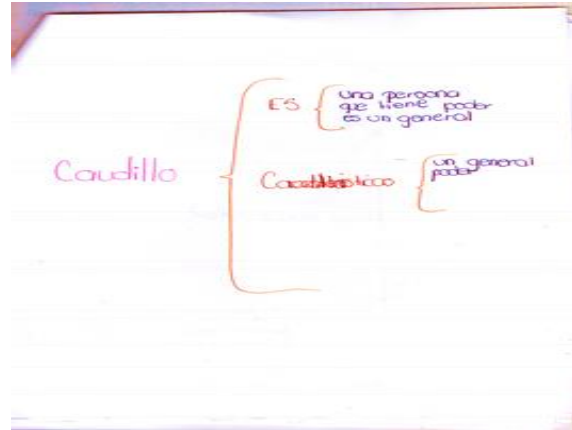 Caudillo
ES
una persona
que tiene poder
es un general
un general
poder